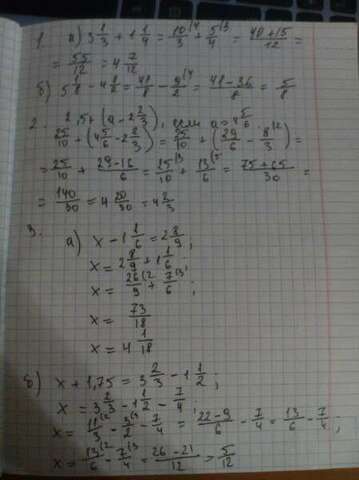 1. а) 3 1/3 + 1 1/4 = 10/3 + 5/4 = (40+15)/12 =
= 55/12 = 4 7/12
б) 5 1/8 - 4 1/2 = 41/8 - 9/2 = (41-36)/8 = 5/8
2. 2,5+(a-2 2/3), если a=4 5/6
25/10 + (4 5/6 - 2 2/3) = 25/10 + (29/6 - 8/3) =
= 25/10 + (29-16)/6 = 25/10 + 13/6 = (75+65)/30 =
= 140/30 = 4 20/30 = 4 2/3
3.
а) x - 1 1/6 = 2 8/9;
x = 2 8/9 + 1 1/6;
x = 26/9 + 7/6;
x = 73/18
x = 4 1/18
б) x + 1,75 = 3 2/3 - 1 1/2;
x = 3 2/3 - 1 1/2 - 7/4
x = 11/3 - 3/2 - 7/4 = (22-9)/6 - 7/4 = 13/6 - 7/4;
x = 13/6 - 7/4 = (26-21)/12 = 5/12